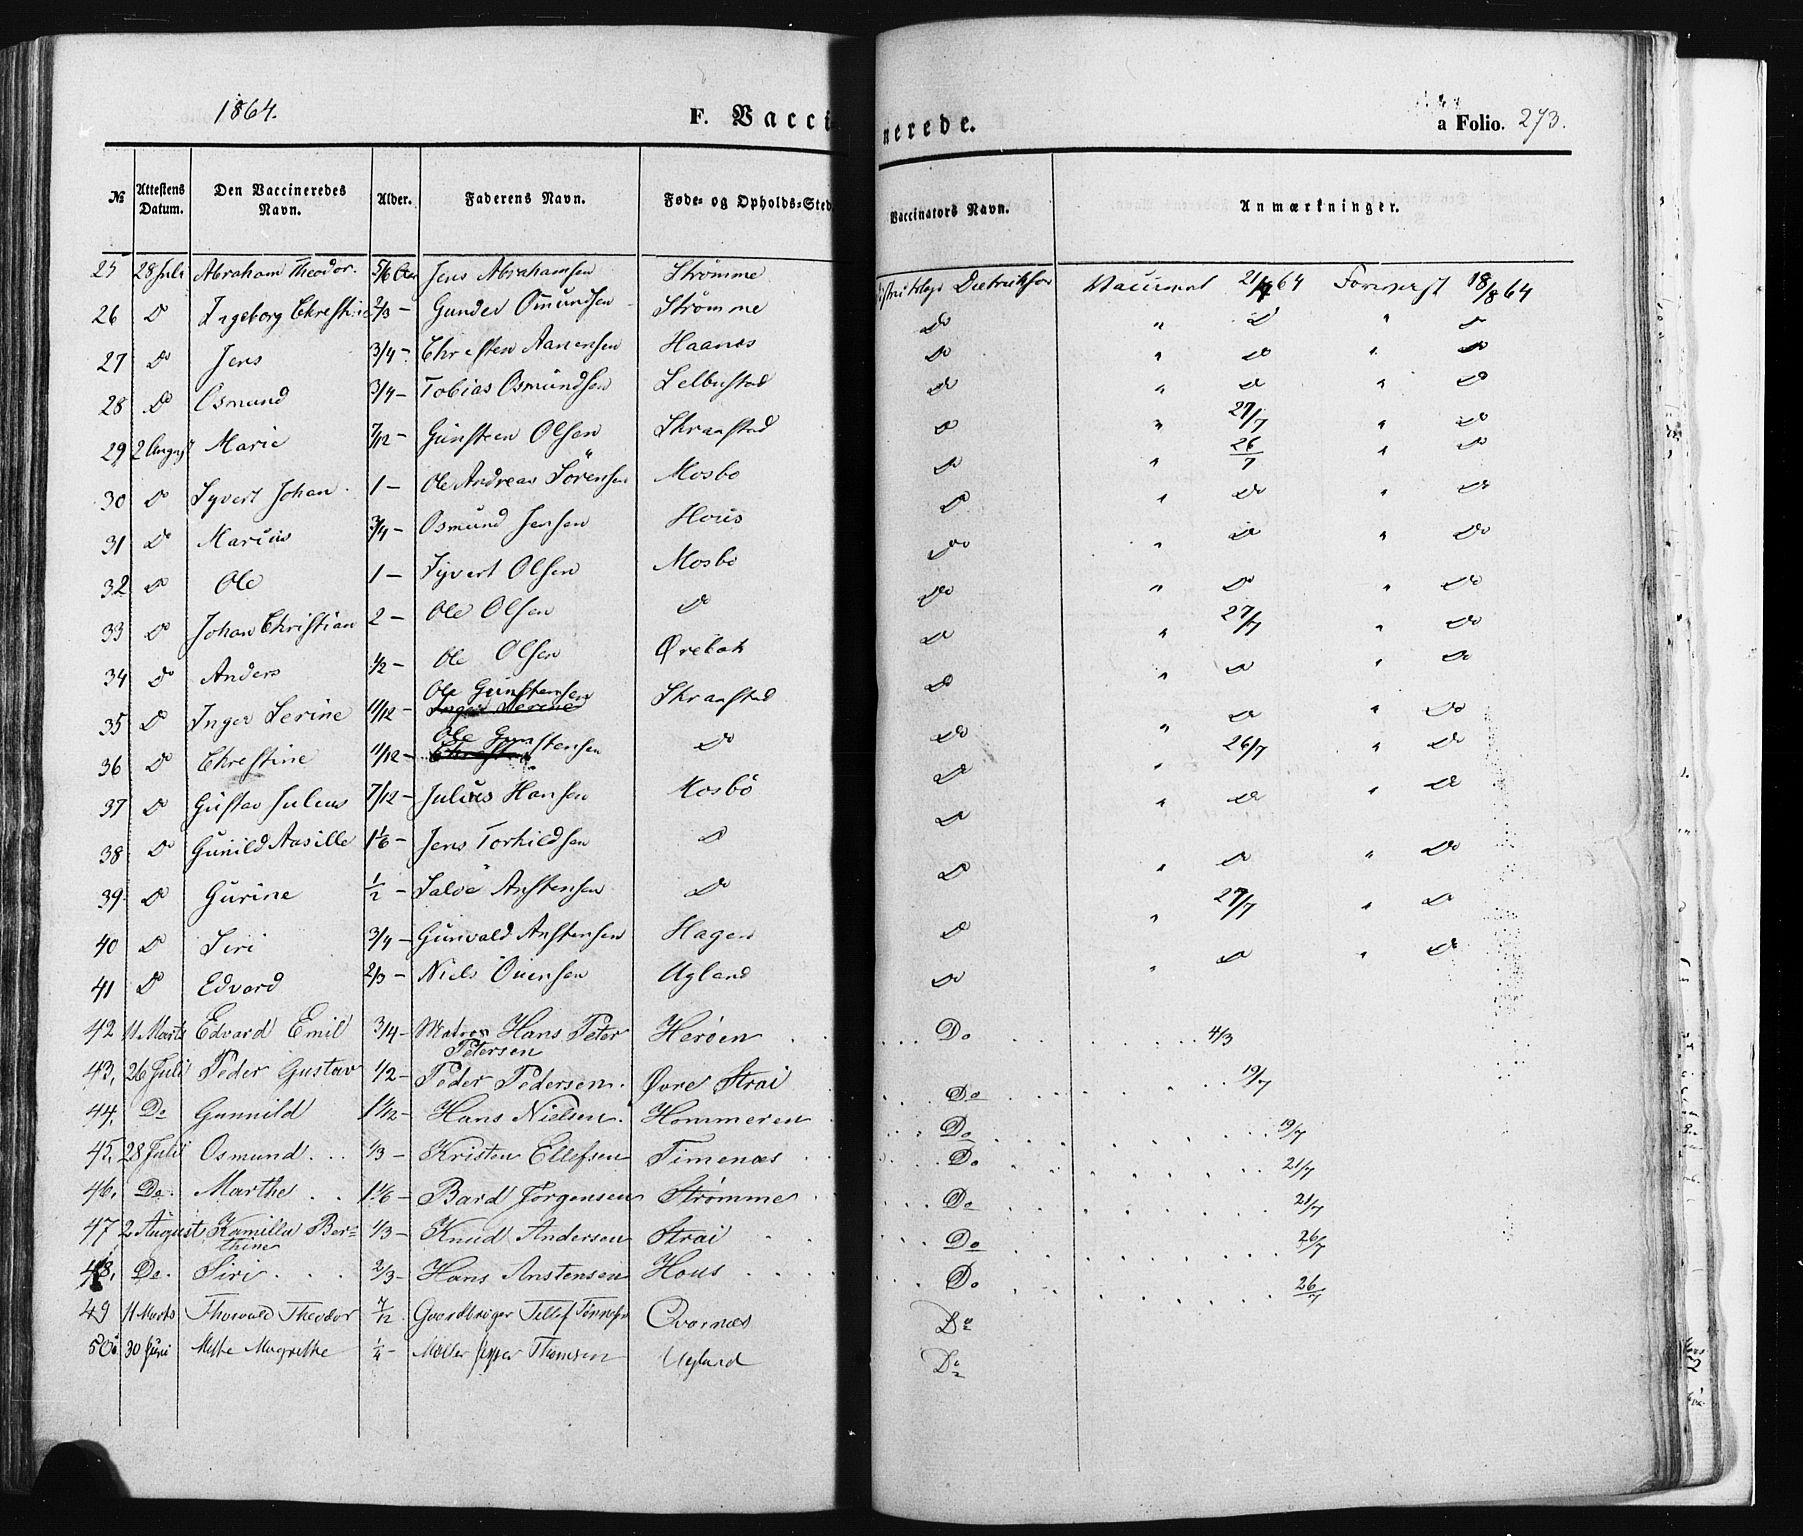 1864.
F. Vaccinerede.
a Folio. 273.
№ Attestens Datum. Den Vaccineredes Navn. Alder. Faderens Navn. Føde- og Opholds-Sted Vaccinators Navn. Anmærkninger.
25 28 Juli Abraham Theodor. 5/6 Aar Jens Abrahamsen Strømme Dietrikson Vaccineret 21/7 64 Foreviist 18/8 64
26 Do Ingeborg Chrestine 2/3 - Gunder Omundsen Strømme Do " Do " Do
27 Do Jens 3/4 - Chresten Aanensen Haanes Do " Do " Do
28 Do Osmund 3/4 - Tobias Osmundsen Lelbustad Do " Do " Do
29 2 August Marie 7/12 - Gunsteen Olsen Skraastad Do " 27/7 " Do
30 Do Syvert Johan 1 - Ole Andreas Sörensen Mosbö Do " 26/7 " Do
31 Do Marius 3/4 - Osmund Jensen Hous Do " Do " Do
32 Do Ole 1 - Syvert Olsen Mosbö Do " Do " Do
33 Do Johan Christian 2 - Ole Olsen Do Do " Do " Do
34 Do Anders 1/2 - Ole Olsen Ørebæk Do " 27/7 " Do
35 Do Inger Serine 11/12 - Ole Gunstensen Skraastad Do " Do " Do
Inger Serine
36 Do Chrestine 11/12 - Ole Gunstensen Do Do " Do " Do
37 Do Gustav Julius 7/12 - Julius Hansen Mosbö Do " 26/7 " Do
38 Do Gunild Aasille 1 1/6 - Jens Torkildsen Do Do " Do " Do
39 Do Gurine 1/2 - Salve Anstensen Do Do " Do " Do
40 Do Siri 3/4 - Gunvald Anstensen Hagen Do " 27/7 " Do
41 Do Edvard 2/3 - Niels Ouensen Ugland Do " Do " Do
42 11 Marts Edvard Emil 3/4 - Matros Hans Peter Petersen Herøen Do 4/3
43, 26 Juli Peder Gustav 1/2 - Peder Pedersen. Øvre Strai Do 19/7
44, Do Gunnild 1 1/12 - Hans Nielsen. Hommeren Do 19/7
45, 28 Juli Osmund 1/3 - Kristen Ellefsen Timenes Do 21/7
46, Do. Marthe 1 1/6 - Bard Jørgensen Strømme Do 21/7
47 2 August Kamilla Berthine 1/3 - Knud Andersen Strai Do 26/7
48, Do. Siri 2/3 - Hans Anstensen Hous Do 26/7
49 11 Marts Thorvald Theodor 7/12 Gaardbruger Tellef Tønnesen Qvarnes Do
50. 30 Juni Mette Magrethe 1/4 - Møller Thomsen Ugland Do